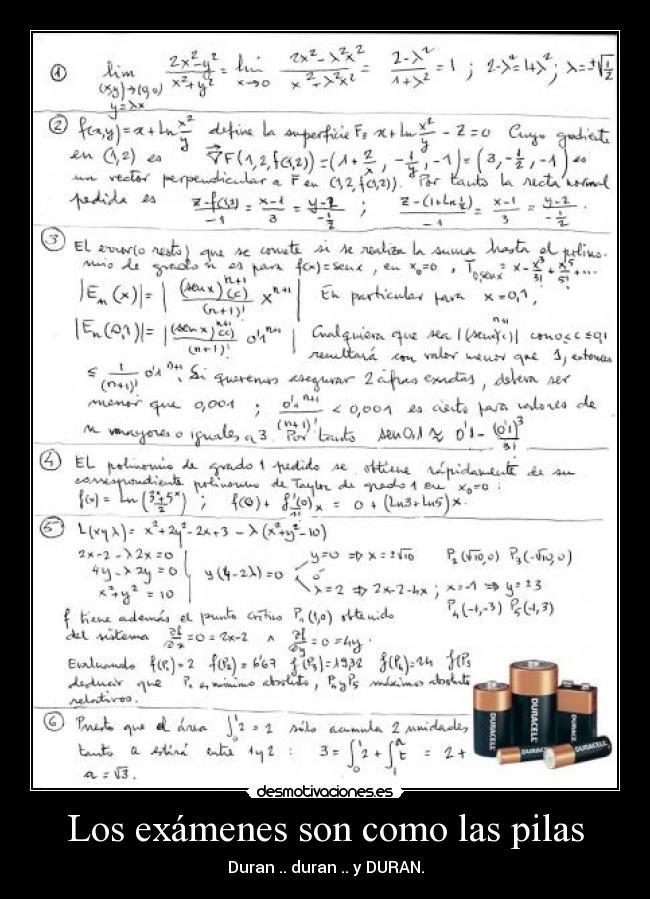 ① lim 2x²-y² / x²+y² = lim 2x²-λ²x² / x²+λ²x² = 2-λ² / 1+λ² = 1 ; 2-λ²=1+λ² ; λ=±√(1/2)
(x,y)→(0,0) x→0
y=λx
② f(x,y)=x+Ln x²/y define la superficie F≡ x+Ln x²/y - Z=0 Cuyo gradiente
en (1,2) es ∇F(1,2,f(1,2))=(1+2/x, -1/y, -1)=(3,-1/2,-1) es
un vector perpendicular a F en (1,2,f(1,2)). Por tanto la recta normal
pedida es z-f(1,2)/-1 = x-1/3 = y-2/-1/2 ; z-(1+Ln 1/2)/-1 = x-1/3 = y-2/-1/2 .
③ El error(o resto) que se comete si se realiza la suma hasta el polino-
mio de grado n es para f(x)=senx, en x₀=0, T₀senx = x-x³/3!+x⁵/5!+...
|Eₙ(x)|= | (senx)ⁿ⁺¹(c) / (n+1)! xⁿ⁺¹ | En particular para x=0,1,
|Eₙ(0,1)|= | (senx)ⁿ⁺¹(c) / (n+1)! 0'1ⁿ⁺¹ | Cualquiera que sea |(senx)ⁿ⁺¹(c)| con 0≤c≤0,1
resultará con valor menor que 1, entonces
≤ 1/(n+1)! 0'1ⁿ⁺¹. Si queremos asegurar 2 cifras exactas, debera ser
menor que 0,001 ; 0'1ⁿ⁺¹/(n+1)! < 0,001 es cierto para valores de
n mayores o iguales a 3. Por tanto sen0,1 ≈ 0'1 - (0'1)³/3!
④ EL polinomio de grado 1 pedido se obtiene rápidamente de su
correspondiente polinomio de Taylor de grado 1 en x₀=0 :
f(x)= Ln (3ˣ+5ˣ / 2) ; f(0)+ f'(0)x = 0 + (Ln3+Ln5)x.
⑤ L(xyλ)= x²+2y²-2x+3 -λ(x²+y²-10)
2x-2-λ2x=0
4y-λ2y=0
x²+y²=10
y(4-2λ)=0
y=0 ⇒ x=±√10 P₂(√10,0) P₃(-√10,0)
o
λ=2 ⇒ 2x-2-4x ; x=-1 ⇒ y=±3
P₄(-1,-3) P₅(-1,3)
f tiene además el punto crítico P₁(1,0) obtenido
del sistema ∂f/∂x=0=2x-2 ∧ ∂f/∂y=0=4y.
Evaluando f(P₁)=2 f(P₂)=6'67 f(P₃)=19,32 f(P₄)=24 f(P₅
deducir que P₁ es mínimo absoluto, P₄yP₅ máximos absolut
relativos.
⑥ Puesto que el área ∫₀¹2=2 sólo acumula 2 unidades,
tanto a estirá entre 1y2 : 3=∫₀¹2+∫₁ᵃt = 2+
a=√3.
DURACELL
DURACELL
DURACELL
DURACELL
DURACELL
desmotivaciones.es
Los exámenes son como las pilas
Duran .. duran .. y DURAN.